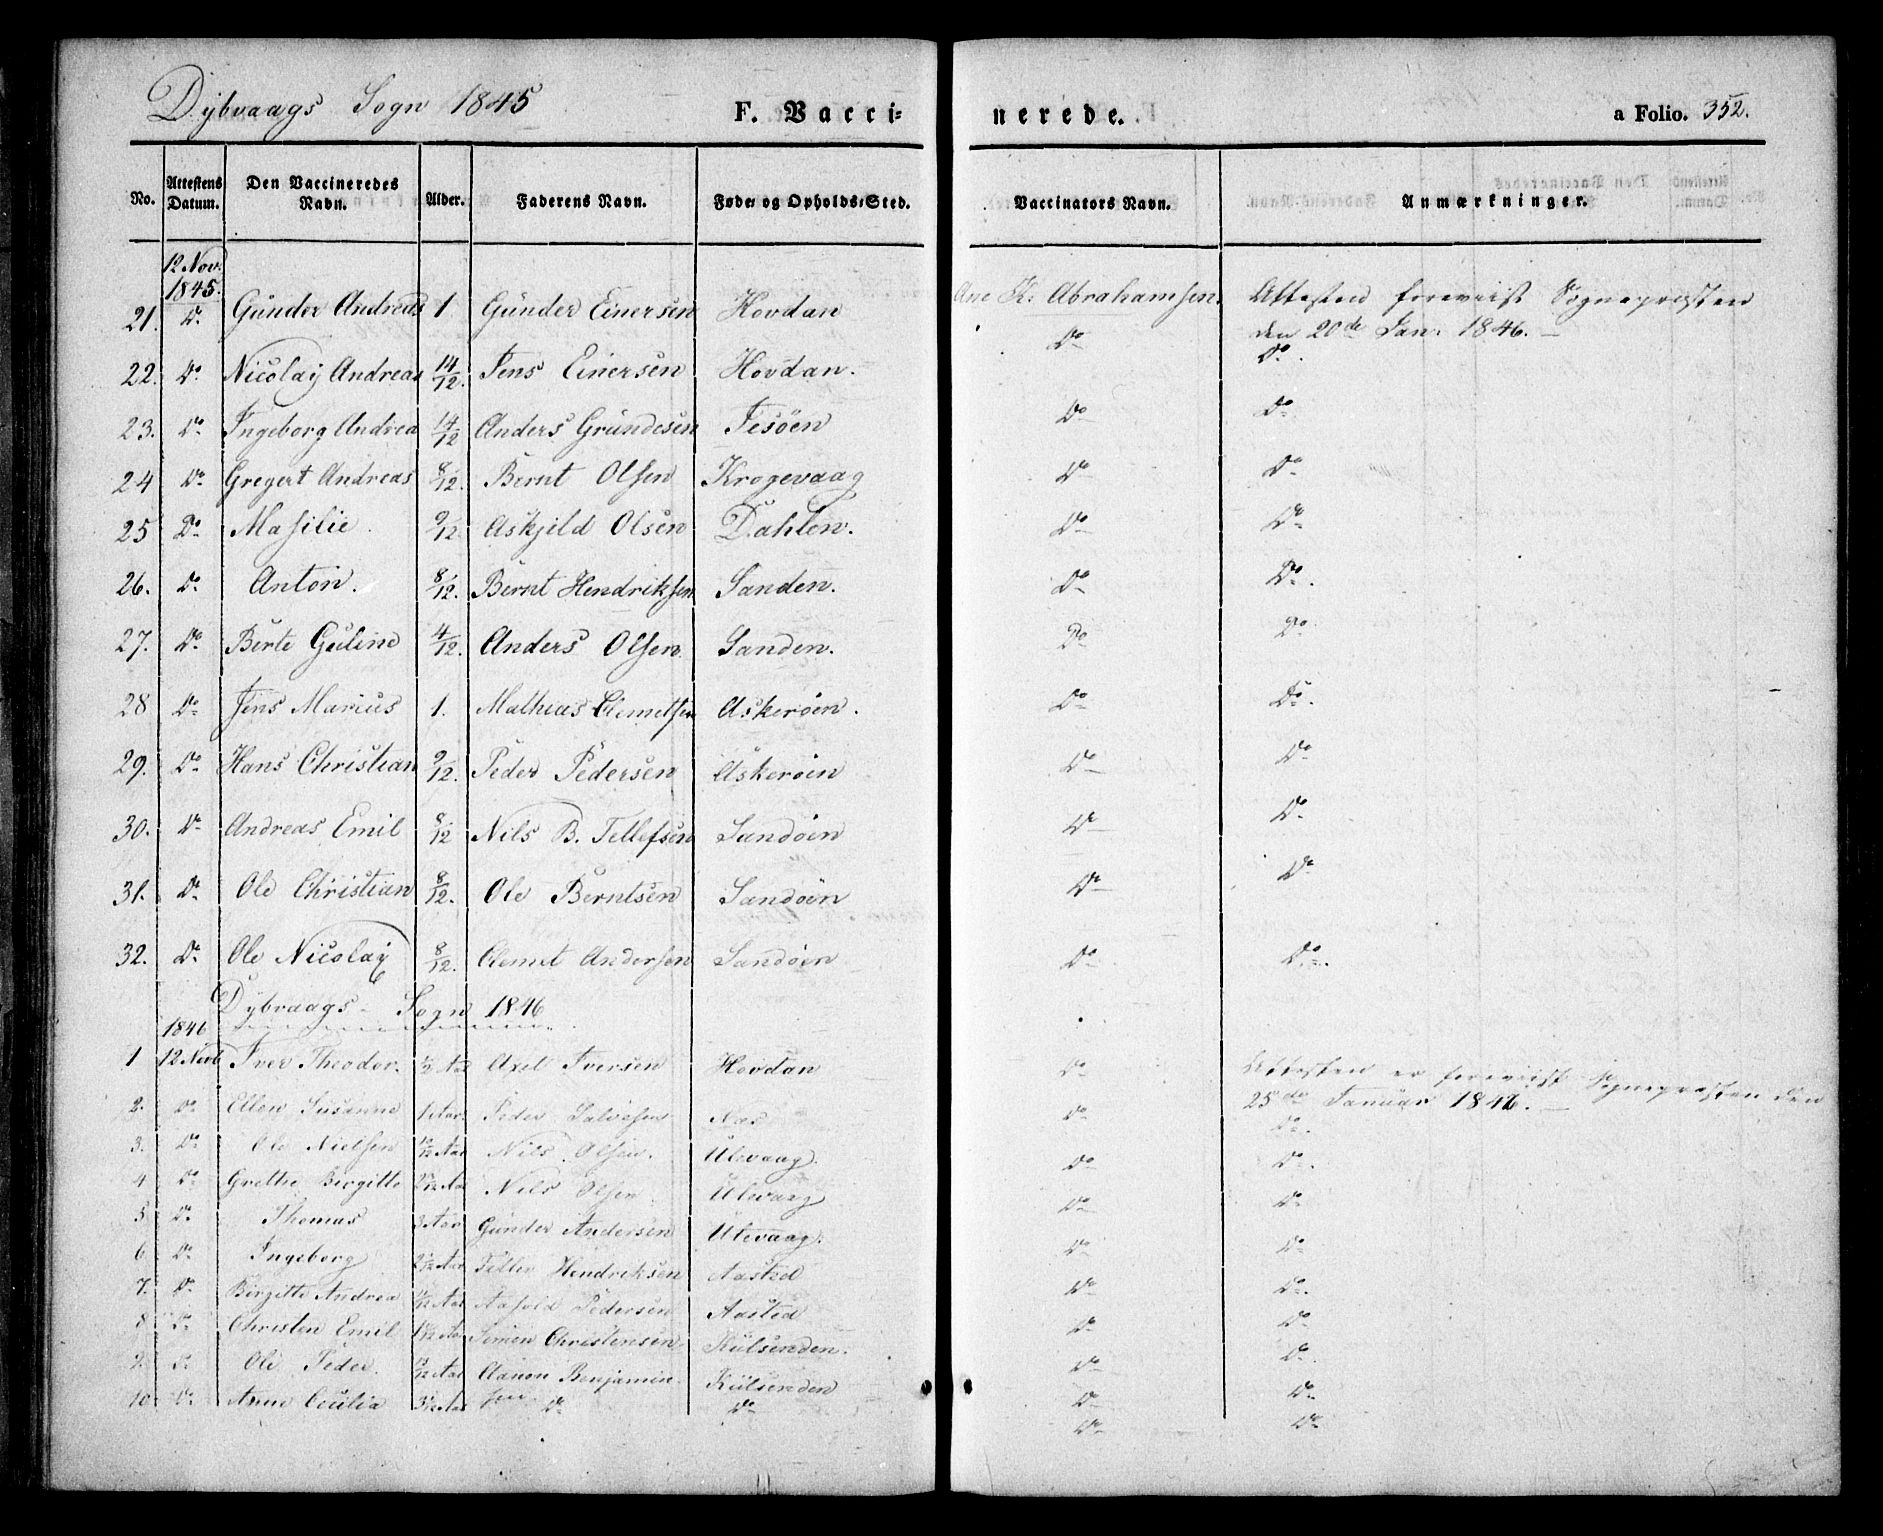 Dybvaags Sogn 1845 F. Vacci- nerede. a Folio. 352.
No. Attestens Datum. Den Vaccineredes Navn. Alder. Faderens Navn. Føde- og Opholds-Sted. Vaccinators Navn. Anmærkninger.
12 Nov. 1845.
21. Do Gunder Andreas 1 Gunder Einersen Hovdan Ane K. Abrahamsen. Attesten foreviist Sognepræsten
den 20de Jan. 1846. –
22. Do Nicolay Andreas 14/12. Jens Einersen Hovdan. Do Do.
23. Do Ingeborg Andrea 14/12 Anders Grundesen Do Do
24 Do Gregert Andreas 8/12. Bernt Olsen Krogevaag Do Do
25 Do Masilie. 9/12. Askjeld Olsen Dahlen. Do Do
26. Do Anton. 8/12. Bernt Hendriksen Sanden. Do Do.
27. Do Berte Guline 4/12. Anders Olsen Sanden. Do Do
28 Do Jens Marius 1. Mathias Clemetsen Askerøen. Do Do.
29. Do Hans Christian 9/12. Peder Pedersen Askerøen Do Do
30. Do Andreas Emil 8/12 Nils B. Tellefsen Sandøen Do Do
31. Do Ole Christian 8/12. Ole Berntsen Sandøen Do Do
32. Do Ole Nicolay 8/12. Clemet Andersen Sandøen Do Do.
Dybvaags Sogn 1846
1846
1 12 Iver Theodor. Axel Iversen Hovdan Do Attesten er foreviist Sognepræsten den
25de Januar 1846. –
2. Do Ellen Susanne 1 Aar Peder Salvesen Næs Do Do
3. Do Ole Nielsen Nils Olsen. Ulevaag. Do Do.
4 Do Grethe Birgitte Nils Olsen Ulevaag Do Do
5 Do Thomas 3 Aar Gunder Andersen Ulevaag. Do Do
6 Do Ingeborg Hendriksen Aasted Do Do.
7. Do Birgitte Andrea Pedersen Aasted Do Do
8 Do Christen Emil Simon Christensen Külsenden. Do Do
9. Do Ole Peder Benjamin- Külsenden Do Do
10 Do Anne Cecilia sen Do Do Do Do